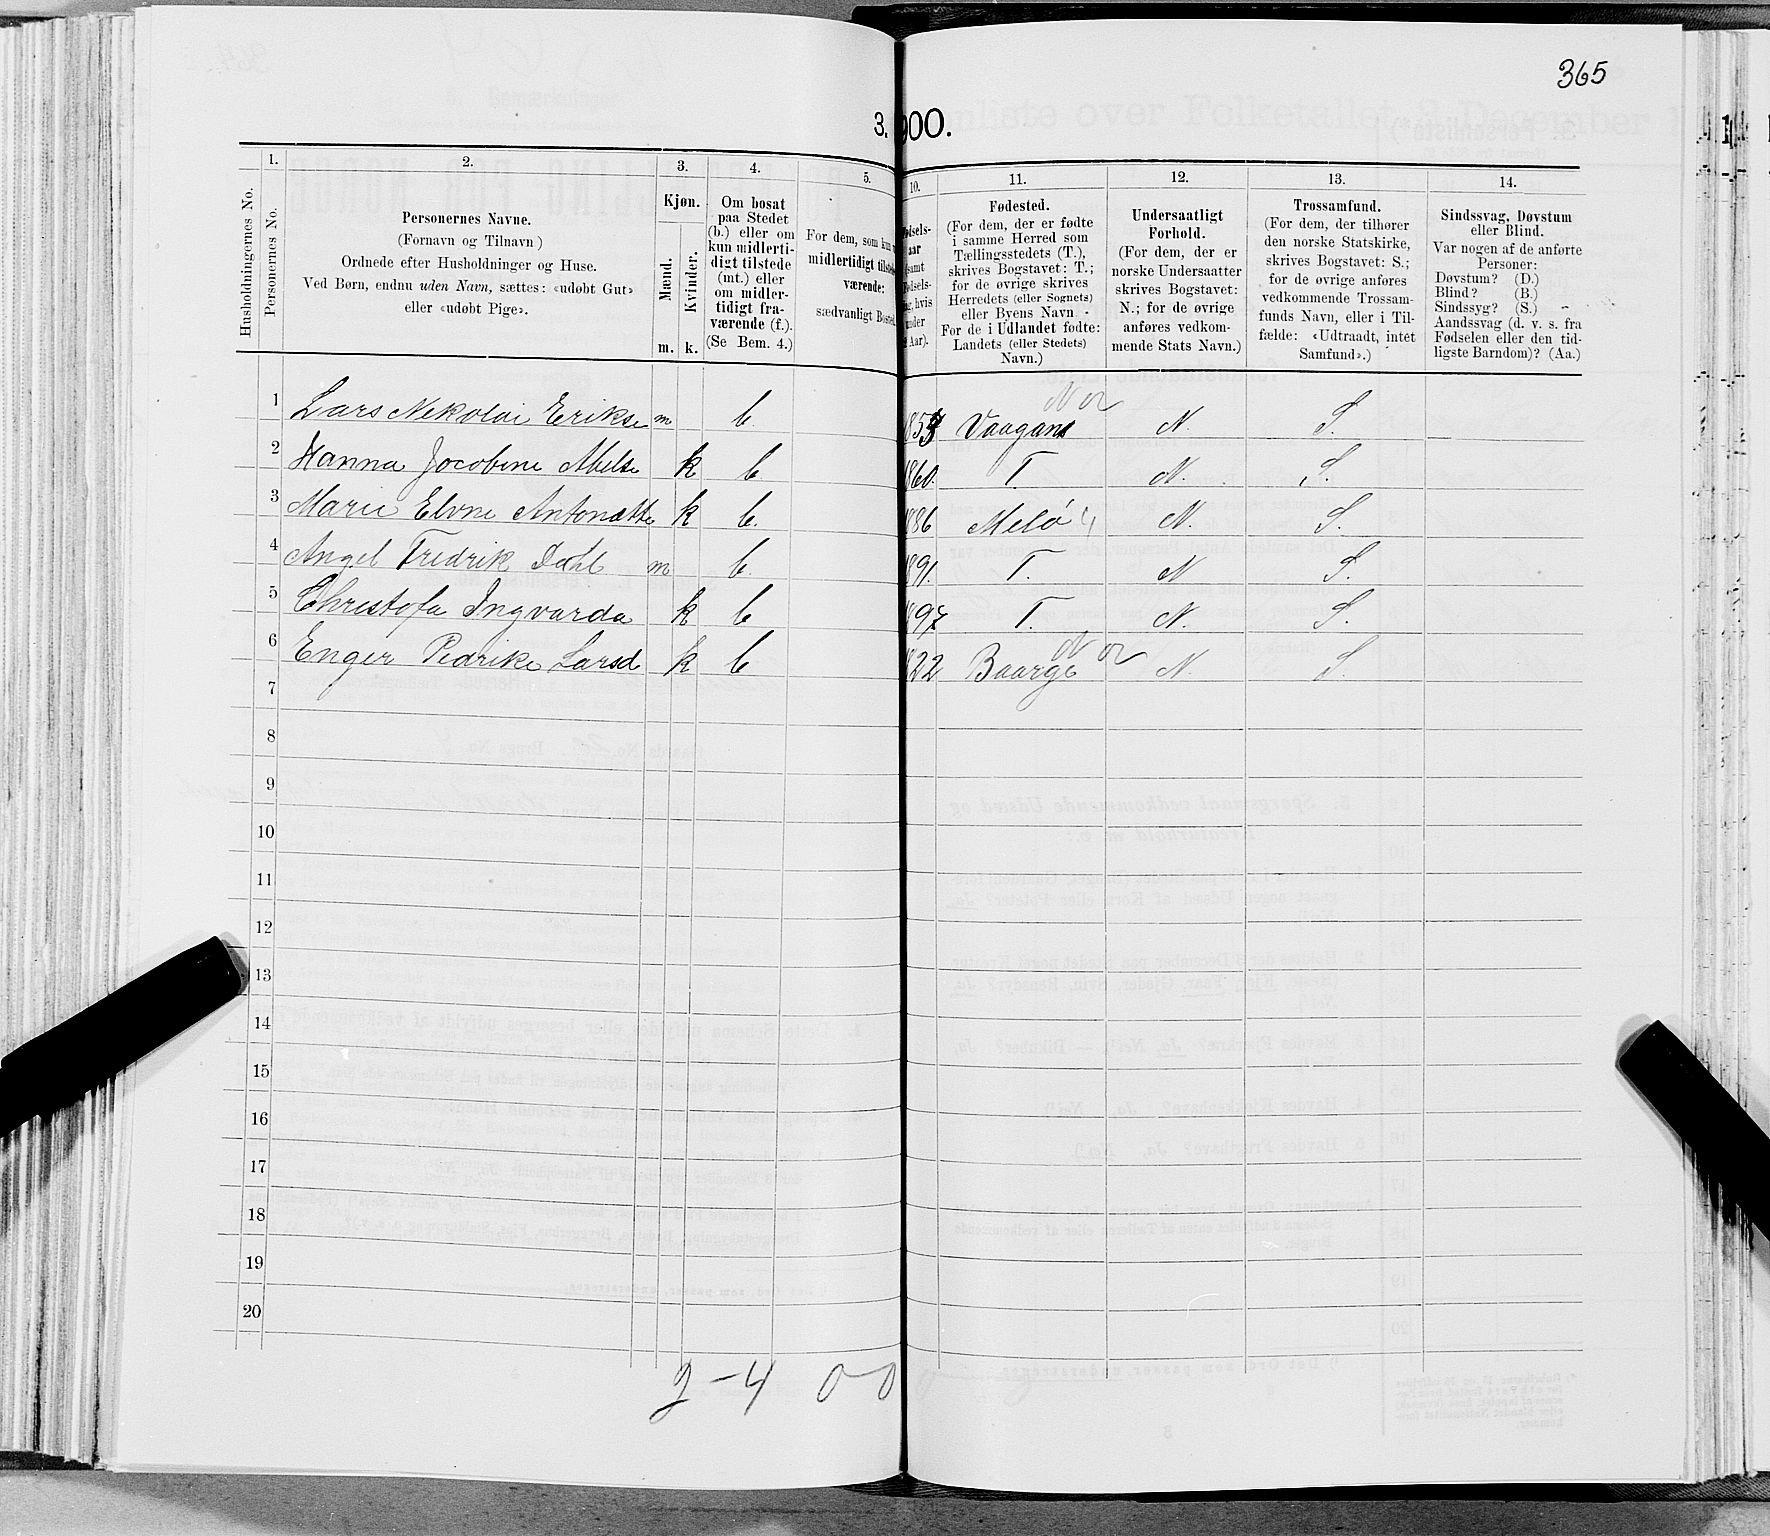 365
3. 900.
Husholdningernes No.
1.
Personernes No.
2.
Personernes Navne.
(Fornavn og Tilnavn)
Ordnede efter Husholdninger og Huse.
Ved Børn, endnu uden Navn, sættes: «udøbt Gut»
eller «udøbt Pige».
3.
Kjøn.
Mænd.
Kvinder.
m. k.
4.
Om bosat
paa Stedet
(b.) eller om
kun midlerti-
digt tilstede
(mt.) eller
om midler-
tidigt fra-
værende (f.).
(Se Bem. 4.)
5.
For dem, som kun
midlertidigt tilstede
værende:
sædvanligt Bosted.
10.
dsels-
aar
samt
dsels-
ag, hvis
under
Aar).
11.
Fødested.
(For dem, der er fødte
i samme Herred som
Tællingsstedets (T.),
skrives Bogstavet: T.;
for de øvrige skrives
Herredets (eller Sognets)
eller Byens Navn.
For de i Udlandet fødte:
Landets (eller Stedets)
Navn.)
12.
Undersaatligt
Forhold.
(For dem, der er
norske Undersaatter
skrives Bogstavet:
N.; for de øvrige
anføres vedkom-
mende Stats Navn.)
13.
Trossamfund.
(For dem, der tilhører
den norske Statskirke,
skrives Bogstavet: S.;
for de øvrige anføres
vedkommende Trossam-
funds Navn, eller i Til-
fælde: «Udtraadt, intet
Samfund».)
14.
Sindssvag, Døvstum
eller Blind.
Var nogen af de anførte
Personer:
Døvstum? (D.)
Blind? (B.)
Sindssyg? (S.)
Aandssvag (d. v. s. fra
Fødselen eller den tid-
ligste Barndom)? (Aa.)
1 Lars Nekolai Erikse m b. Vaagan N. S.
2 Hanna Jocobine Abelse k b. 860. T. N. S.
3 Marie Elvne Antonette k b. 886 Melø N. S.
4 Angel Fredrik Dahl m b. 891. T. N S.
5 Christofa Ingvarda k b 897 T. N. S.
6 Enger Pedrike Larsd k b 822 Baarge N. S.
7
8
9
10
11
12
13
14
15
16
17
18
19
20
2-4 0-0